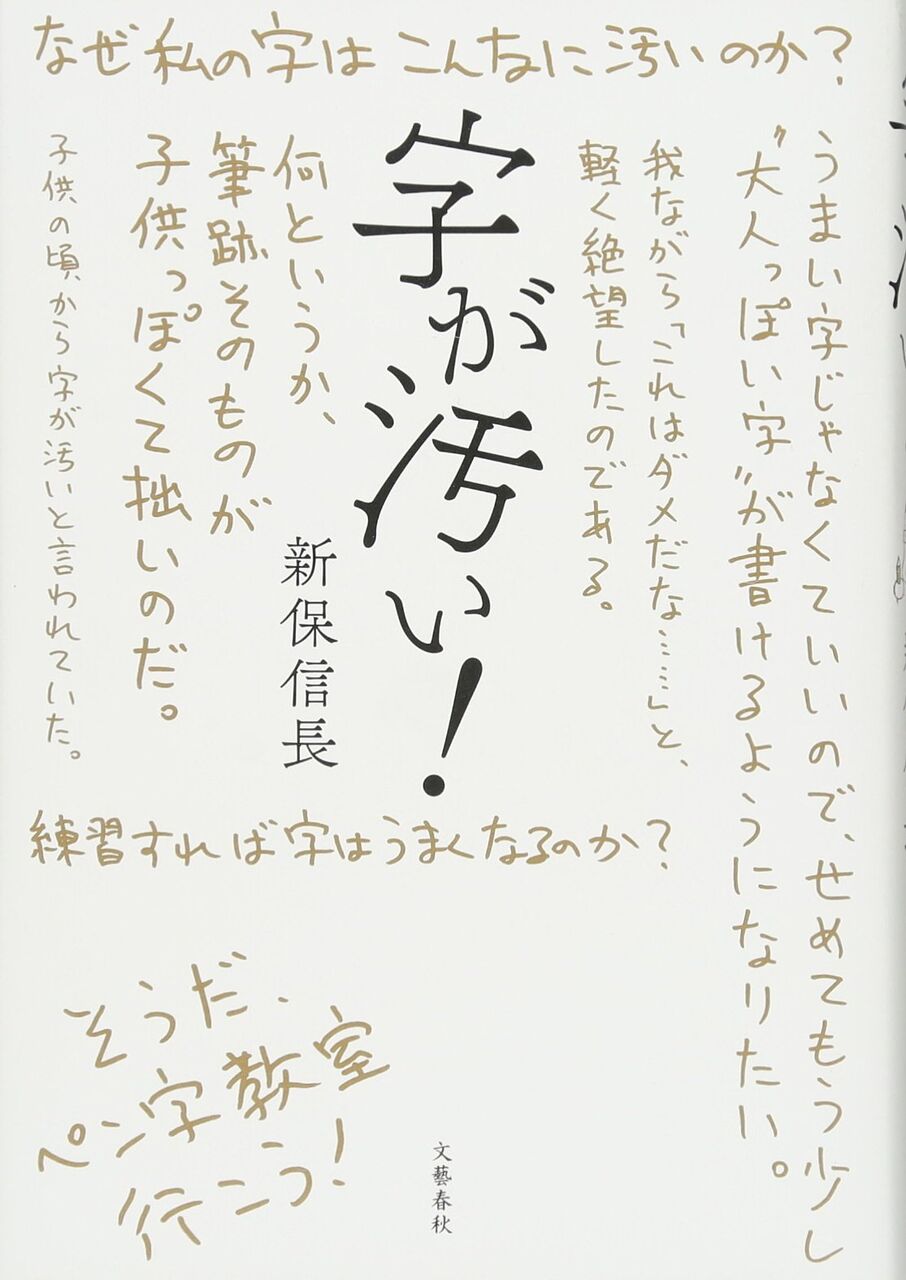 なぜ私の字はこんなに汚いのか?
うまい字じゃなくていいので、せめてもう少し
〝大人っぽい字〟が書けるようになりたい。
我ながら「これはダメだな……」と、
軽く絶望したのである。
字が汚い!
新保信長
何というか、
筆跡そのものが
子供っぽくて拙いのだ。
子供の頃から字が汚いと言われていた。
練習すれば字はうまくなるのか?
そうだ、
ペン字教室
行こう!
文藝春秋